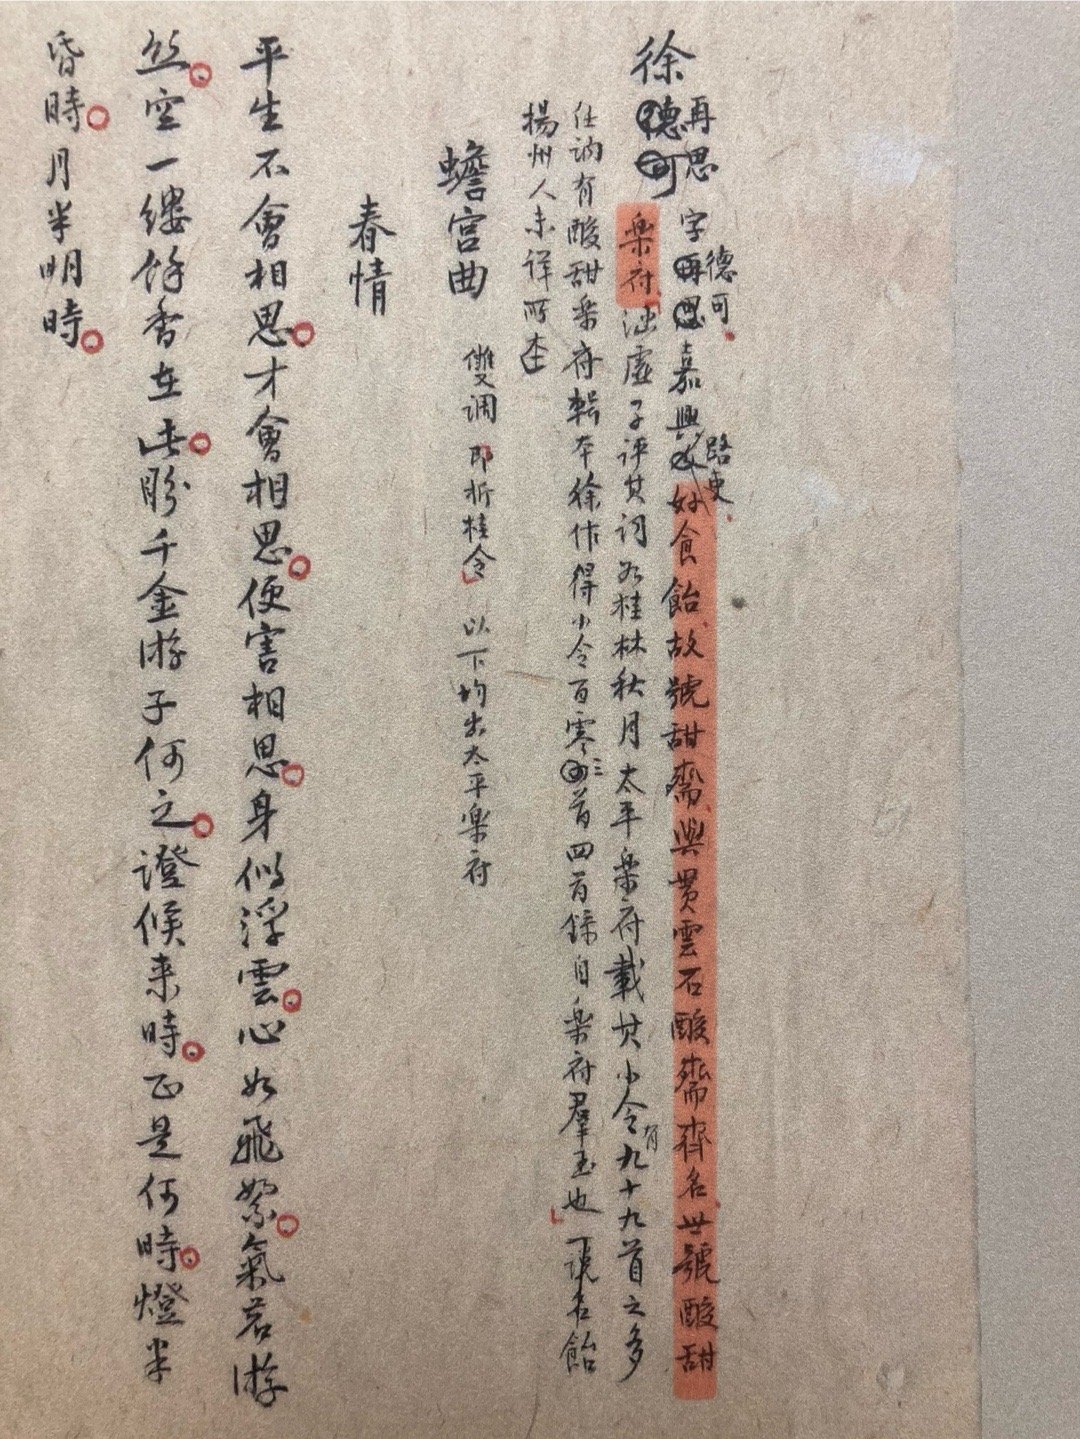 徐再思 字德可 嘉興路吏 好食飴故號甜齋與貫雲石酸齋齊名世號酸甜
樂府 涵虛子評其詞如桂林秋月太平樂府載其小令有九十九首之多
任訥有酸甜樂府輯本徐作得小令百零三首四首錄自樂府羣玉也 一說名飴
揚州人未詳所本
蟾宮曲 雙調 即折桂令 以下均出太平樂府
春情
平生不會相思。才會相思。便害相思。身似浮雲。心如飛絮。氣若游
丝。空一缕馀香在此。盼千金游子何之。證候来時。正是何時。燈半
昏時。月半明時。